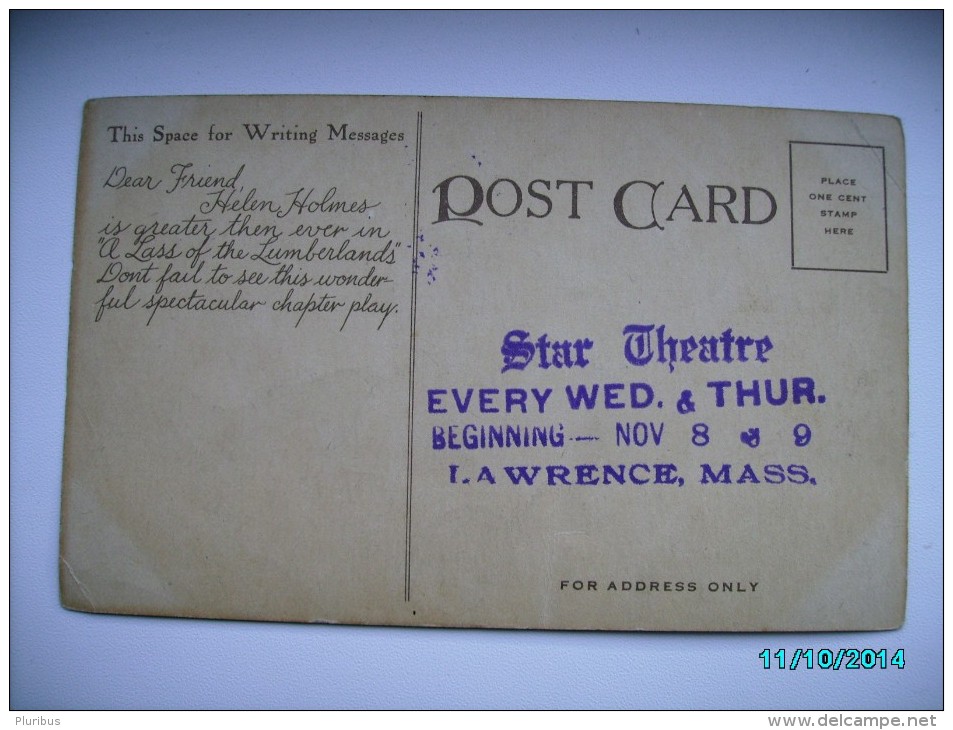 This Space for Writing Messages
Dear Friend,
Helen Holmes
is greater then ever in
"A Lass of the Lumberlands"
Dont fail to see this wonder-
ful spectacular chapter play.
POST CARD
PLACE
ONE CENT
STAMP
HERE
Star Theatre
EVERY WED. & THUR.
BEGINNING — NOV 8 & 9
LAWRENCE, MASS.
FOR ADDRESS ONLY
11/10/2014
Pluribus
www.delcampe.net